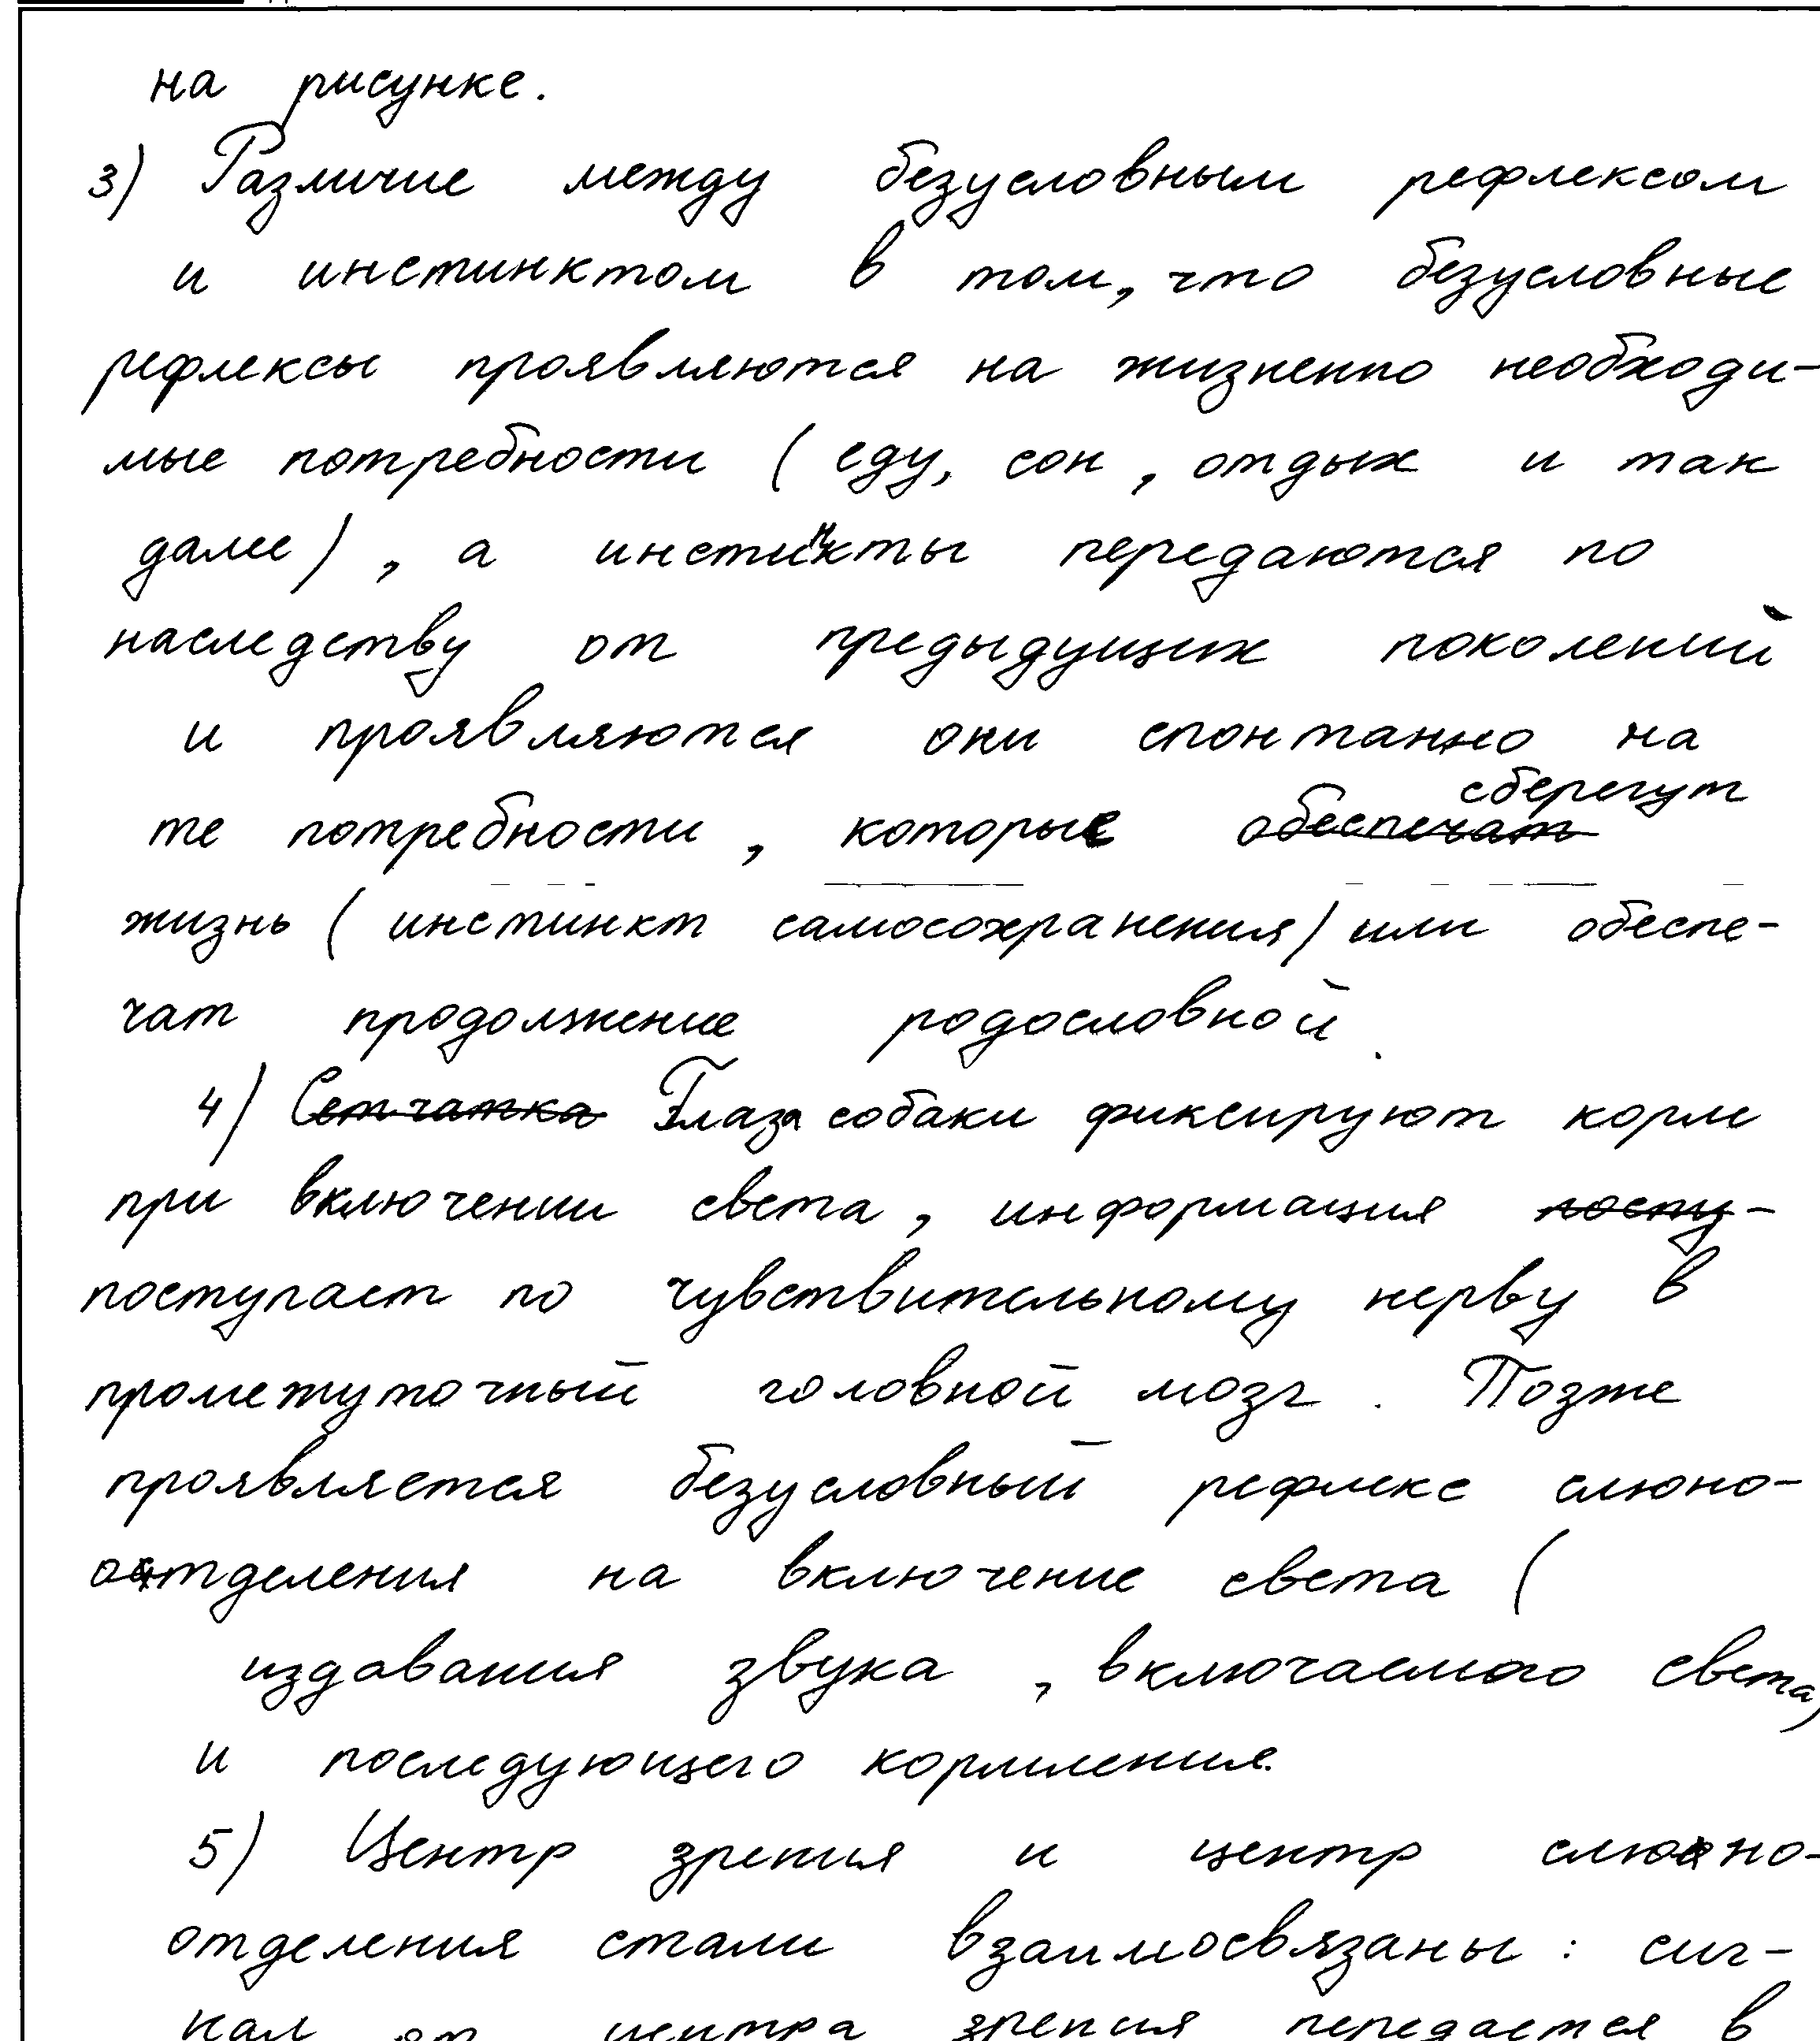 на рисунке.
3) Различие между безусловным рефлексом
и инстинктом в том, что безусловные
рефлексы проявляются на жизненно необходи-
мые потребности ( еду, сон , отдых и так
далее) , а инстинкты передаются по
наследству от предыдущих поколений
и проявляются они спонтанно на
сберегут
те потребности , которые обеспечат
жизнь ( инстинкт самосохранения) или обеспе-
чат продолжение родословной.
4) Сетчатка Глаза собаки фиксируют корм
при включении света , информация посту-
поступает по чувствительному нерву в
промежуточный головной мозг . Позже
проявляется безусловный рефлекс слюно-
отделения на включение света (
издавания звука , включаемого света)
и последующего кормления.
5) Центр зрения и центр слюно-
отделения стали взаимосвязаны : сиг-
нал от центра зрения передается в